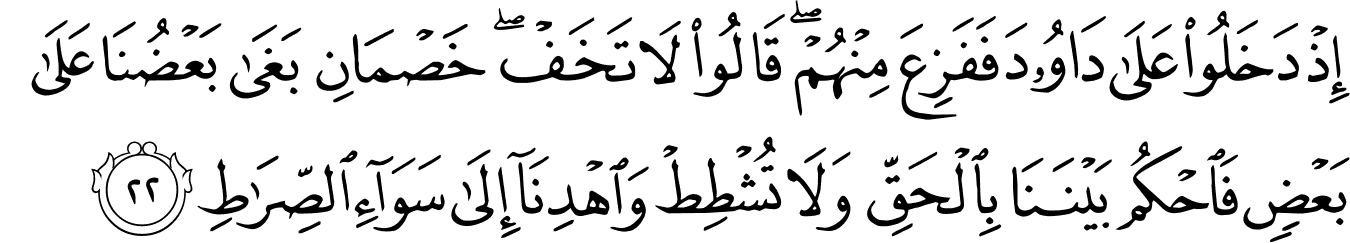 إِذْ دَخَلُوا۟ عَلَىٰ دَاوُۥدَ فَفَزِعَ مِنْهُمْ ۖ قَالُوا۟ لَا تَخَفْ ۖ خَصْمَانِ بَغَىٰ بَعْضُنَا عَلَىٰ
بَعْضٍ فَٱحْكُم بَيْنَنَا بِٱلْحَقِّ وَلَا تُشْطِطْ وَٱهْدِنَآ إِلَىٰ سَوَآءِ ٱلصِّرَٰطِ ٢٢